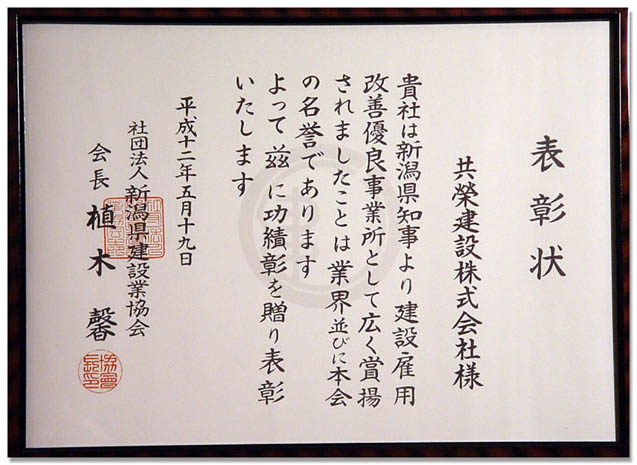 表彰状
共榮建設株式会社様
貴社は新潟県知事より建設雇用
改善優良事業所として広く賞揚
されましたことは業界並びに本会
の名誉であります
よって玆に功績彰を贈り表彰
いたします
平成十二年五月十九日
社団法人新潟県建設業協会
会長 植木馨